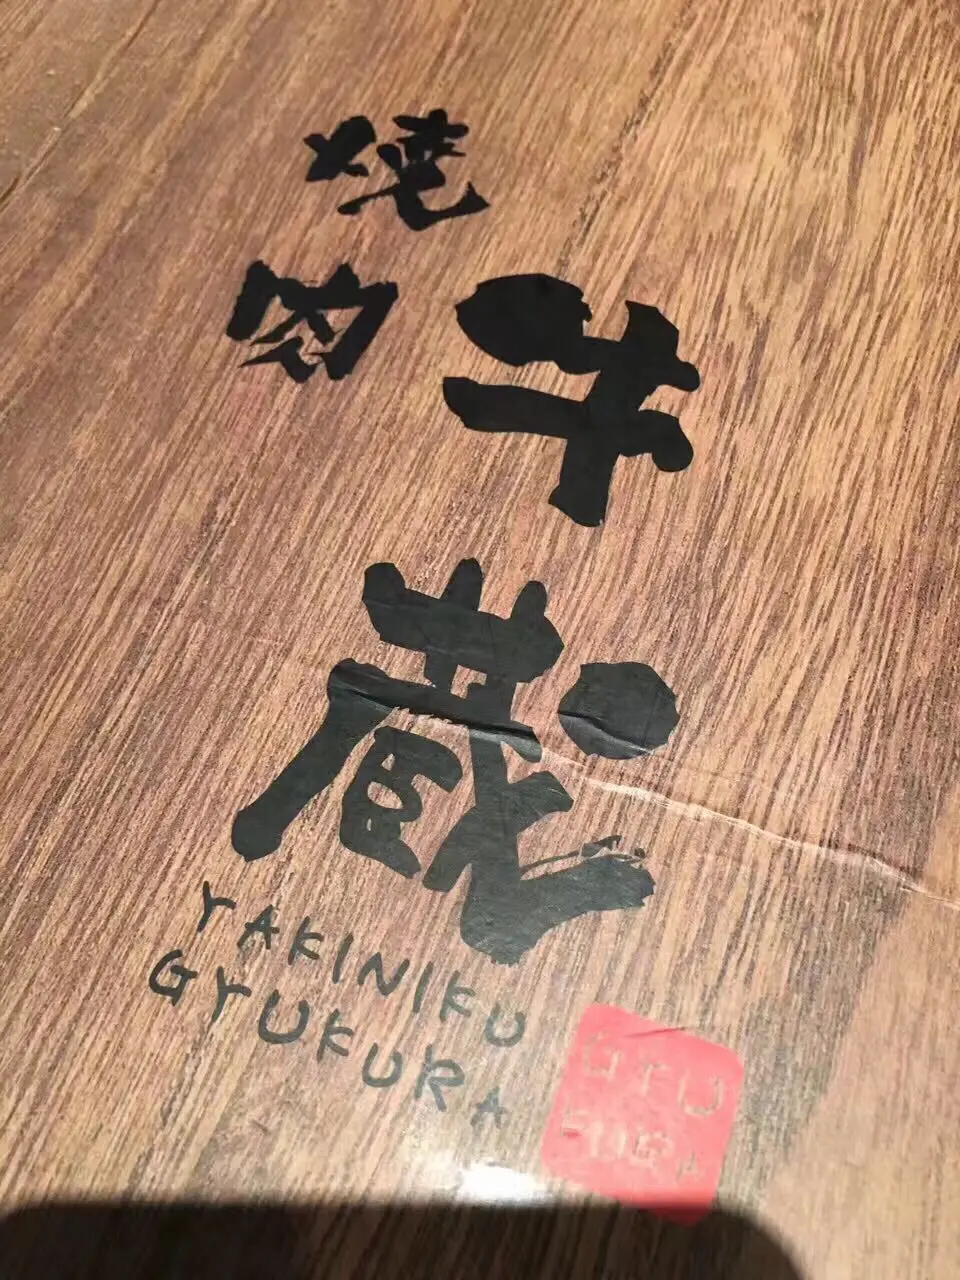 焼肉
牛蔵
YAKINIKU
GYUKURA
GYU
KURA